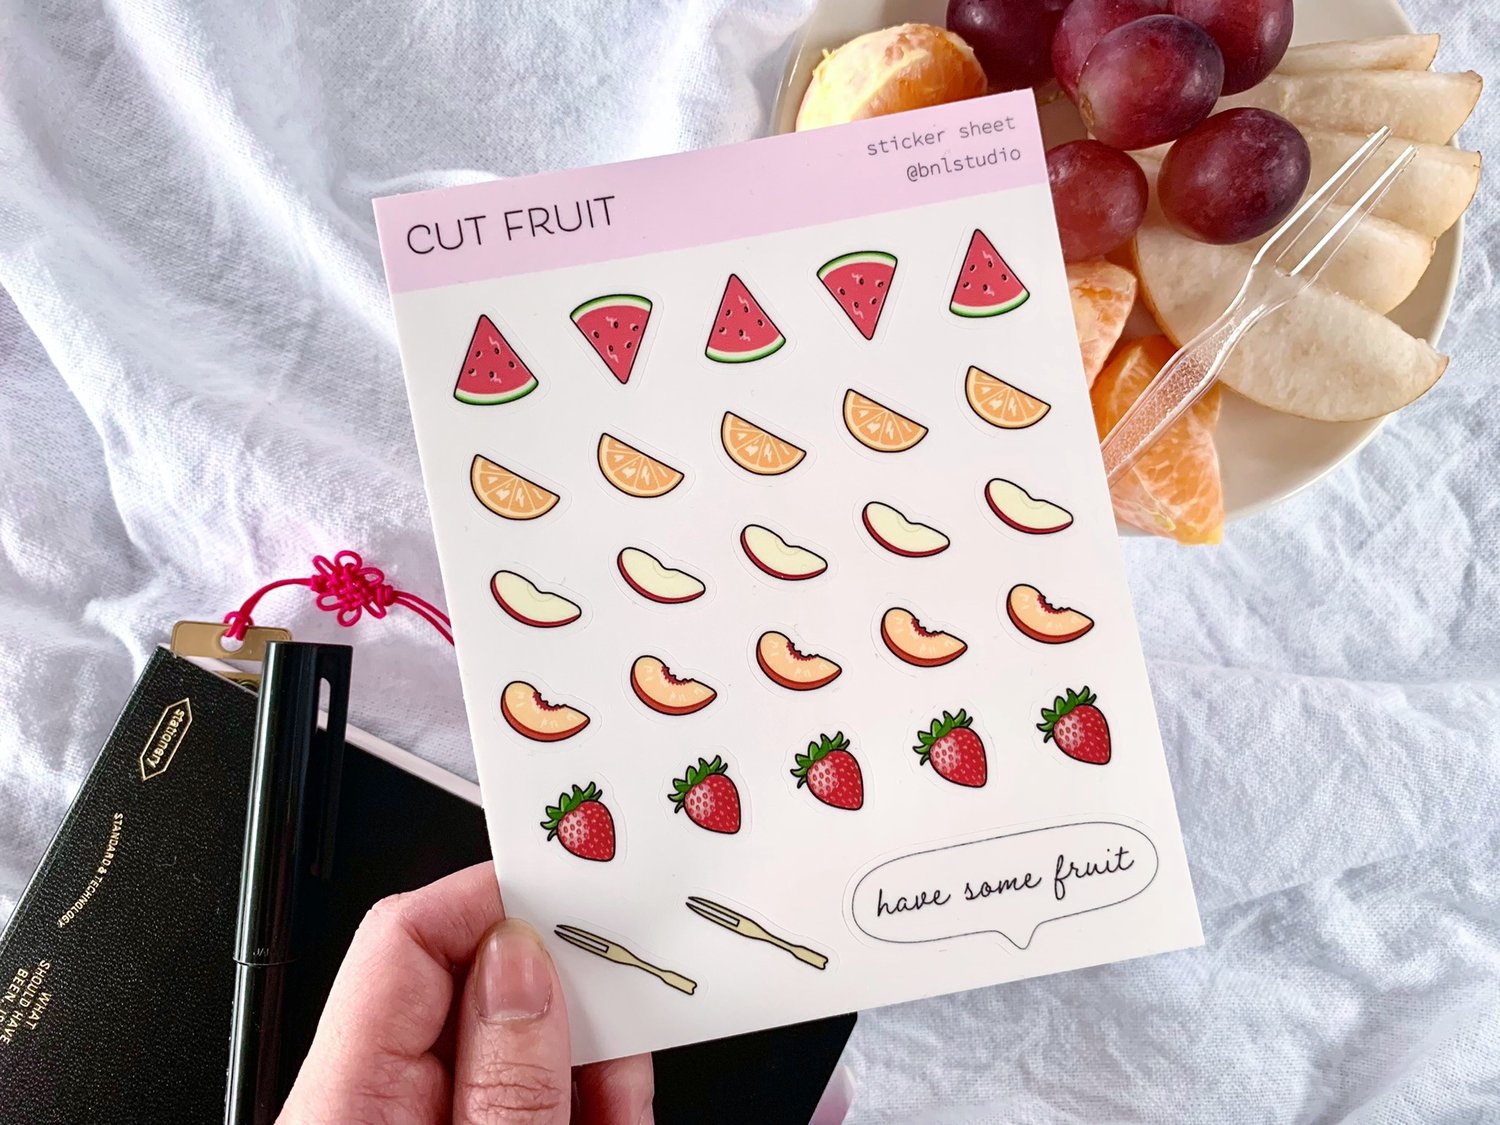 CUT FRUIT
sticker sheet
@bnlstudio
have some fruit
stationery
STANDARD & TECHNOLOGY
WHAT
SHOULD HAVE
BEEN,